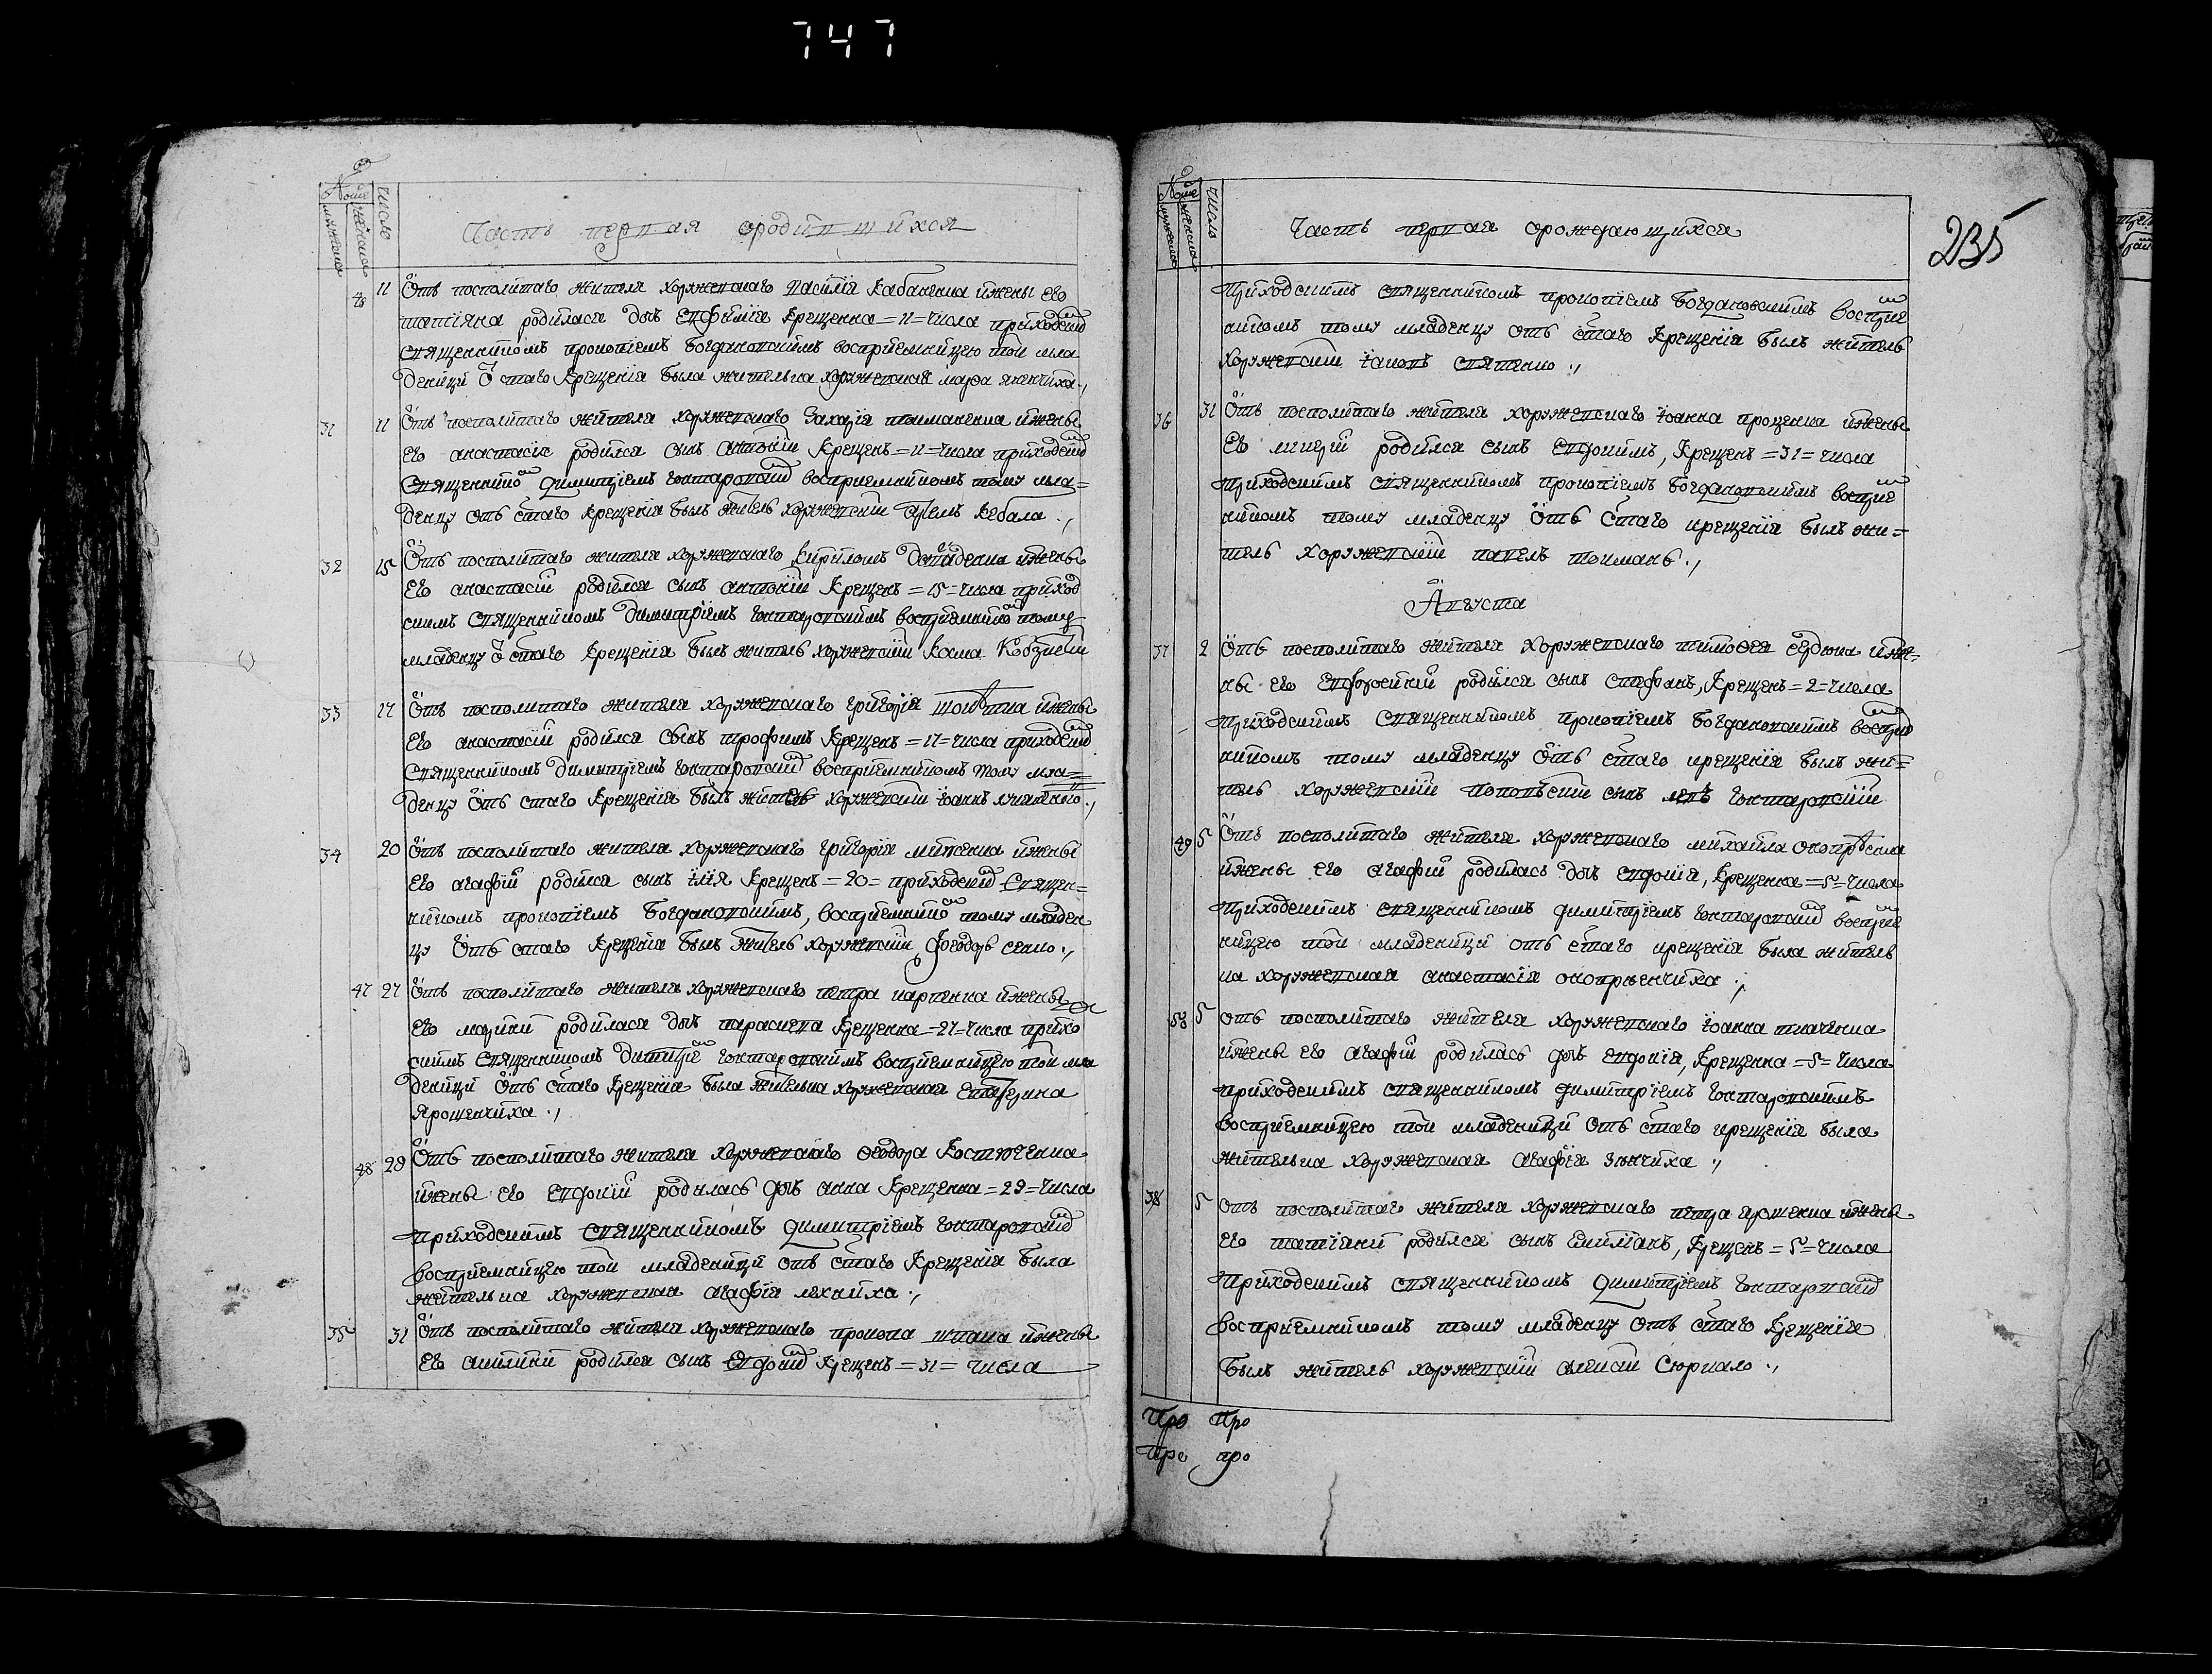 747
№
мужеска
женска
число
Часть первая ородившихся
11 Отъ посполитаго жителя хоружевскаго василія Кабаненка ижены его
татіяна родилася дчь Евфимія Крещенна = 11 = числа приходским
священникомъ прокопіемъ Богдановскимъ восприемницею той мла
деници От стаго Крещенія была жителька хоружевская марфа
31 11 Отъ посполитаго жителя хоружевскаго Захарія товманенка ижены
Его анастасіи родился сынъ антоній Крещенъ = 11 = числа приходским
священнико димитріемъ восприемникомъ тому мла=
денцу отъ стаго Крещенія былъ житель хоружевскій Кебала ./
32 15 Отъ посполитаго жителя хоружевскаго Кирилом ижены
Его анастасіи родился сынъ антоній Крещенъ = 15 = числа приход
скимъ священникомъ димитріемъ восприемнико тому
младенцу От стаго Крещенія былъ житель хоружевскій
33 17 Отъ посполитаго жителя хоружевскаго григорія ижены
Его анастасіи родился сынъ трофимъ Крещенъ = 17 = числа приходским
священникомъ димитріемъ восприемникомъ тому мла=
денцу Отъ стаго Крещенія былъ житель хоружевскій іоаннъ
34 20 Отъ посполитаго жителя хоружевскаго григорія митенка ижены
Его агафіи родился сынъ ілія Крещенъ = 20 = приходским священ=
никомъ прокопіемъ Богдановскимъ, восприемнико тому младен
цу Отъ стаго Крещенія былъ житель хоружевскій феодоръ сенко ./
47 27 Отъ посполитаго жителя хоружевскаго петра карпенка ижены
Его марини родилася дчь параскева Крещенна = 27 = числа прихо
скимъ священникомъ восприемницею той мла
деници Отъ стаго Крещенія была жителька хоружевская Екатерина
Ярошенчиха ./
48 29 Отъ посполитаго жителя хоружевскаго феодора Костюченка
ижены Его Евдокіи родилась дчь анна Крещенна = 29 = числа
приходскимъ священникомъ димитріемъ
восприемницею той младеници отъ стаго Крещенія была
жителька хоружевская агафія ./
35 31 Отъ посполитаго жителя хоружевскаго прокопа шпака ижены
Его акилини родился сынъ Евдоким Крещенъ = 31 = числа
№
мужеска
женска
число
Часть первая орождающихся
235
приходскимъ священникомъ прокопіемъ Богдановскимъ восприе
никомъ тому младенцу отъ стаго Крещенія былъ житель
хоружевскій іаковъ святенко ./
36 31 Отъ посполитаго жителя хоружевскаго іоанна проценка ижены
Его родился сынъ Евдокимъ, Крещенъ = 31 = числа
приходскимъ священникомъ прокопіемъ Богдановскимъ восприе
никомъ тому младенцу Отъ стаго крещенія былъ жи=
тель хоружевскій павелъ товманъ ./
Августа
37 2 Отъ посполитаго жителя хоружевскаго тимофея ижe=
ны его Евфросиніи родился сынъ стефанъ, Крещенъ = 2 = числа
приходскимъ священникомъ прокопіемъ Богдановскимъ восприе
никомъ тому младенцу Отъ стаго крещенія былъ жи=
тель хоружевскій поповскій сынъ левъ
49 5 Отъ посполитаго жителя хоружевскаго михаила
ижены Его агафіи родилась дчь евдокія, Крещенна = 5 = числа
приходскимъ священникомъ димитріемъ восприе
ницею той младеници отъ стаго крещенія была житель
ка хоружевская анастасія ./
50 5 отъ посполитаго жителя хоружевскаго іоанна ткаченка
ижены его агафіи родилась дчь евдокія, Крещенна = 5 = числа
приходскимъ священникомъ димитріемъ
восприемницею той младеници отъ стаго крещенія была
жителька хоружевская агафія зѣнчиха ./
38 5 Отъ посполитаго жителя хоружевскаго петра ярошенка ижены
Его татіяни родился сынъ Емиліанъ, Крещенъ = 5 = числа
приходскимъ священникомъ димитріемъ
восприемникомъ тому младенцу отъ стаго Крещенія
былъ житель хоружевскій алексій Сюркало ./
Про Про
Про про